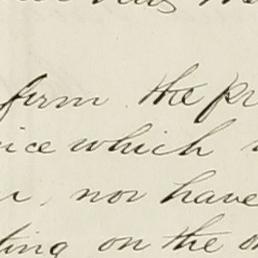 firm the pr
ice which
nor have
ting on the o